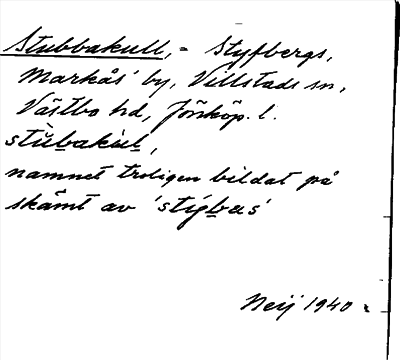 Stubbakull, = Styfbergs,
Markås' by, Villstads sn,
Västbo hd, Jönköp. l.
stŭbakul,
namnet troligen bildat på
skämt av 'stýbas'
Neij 1940